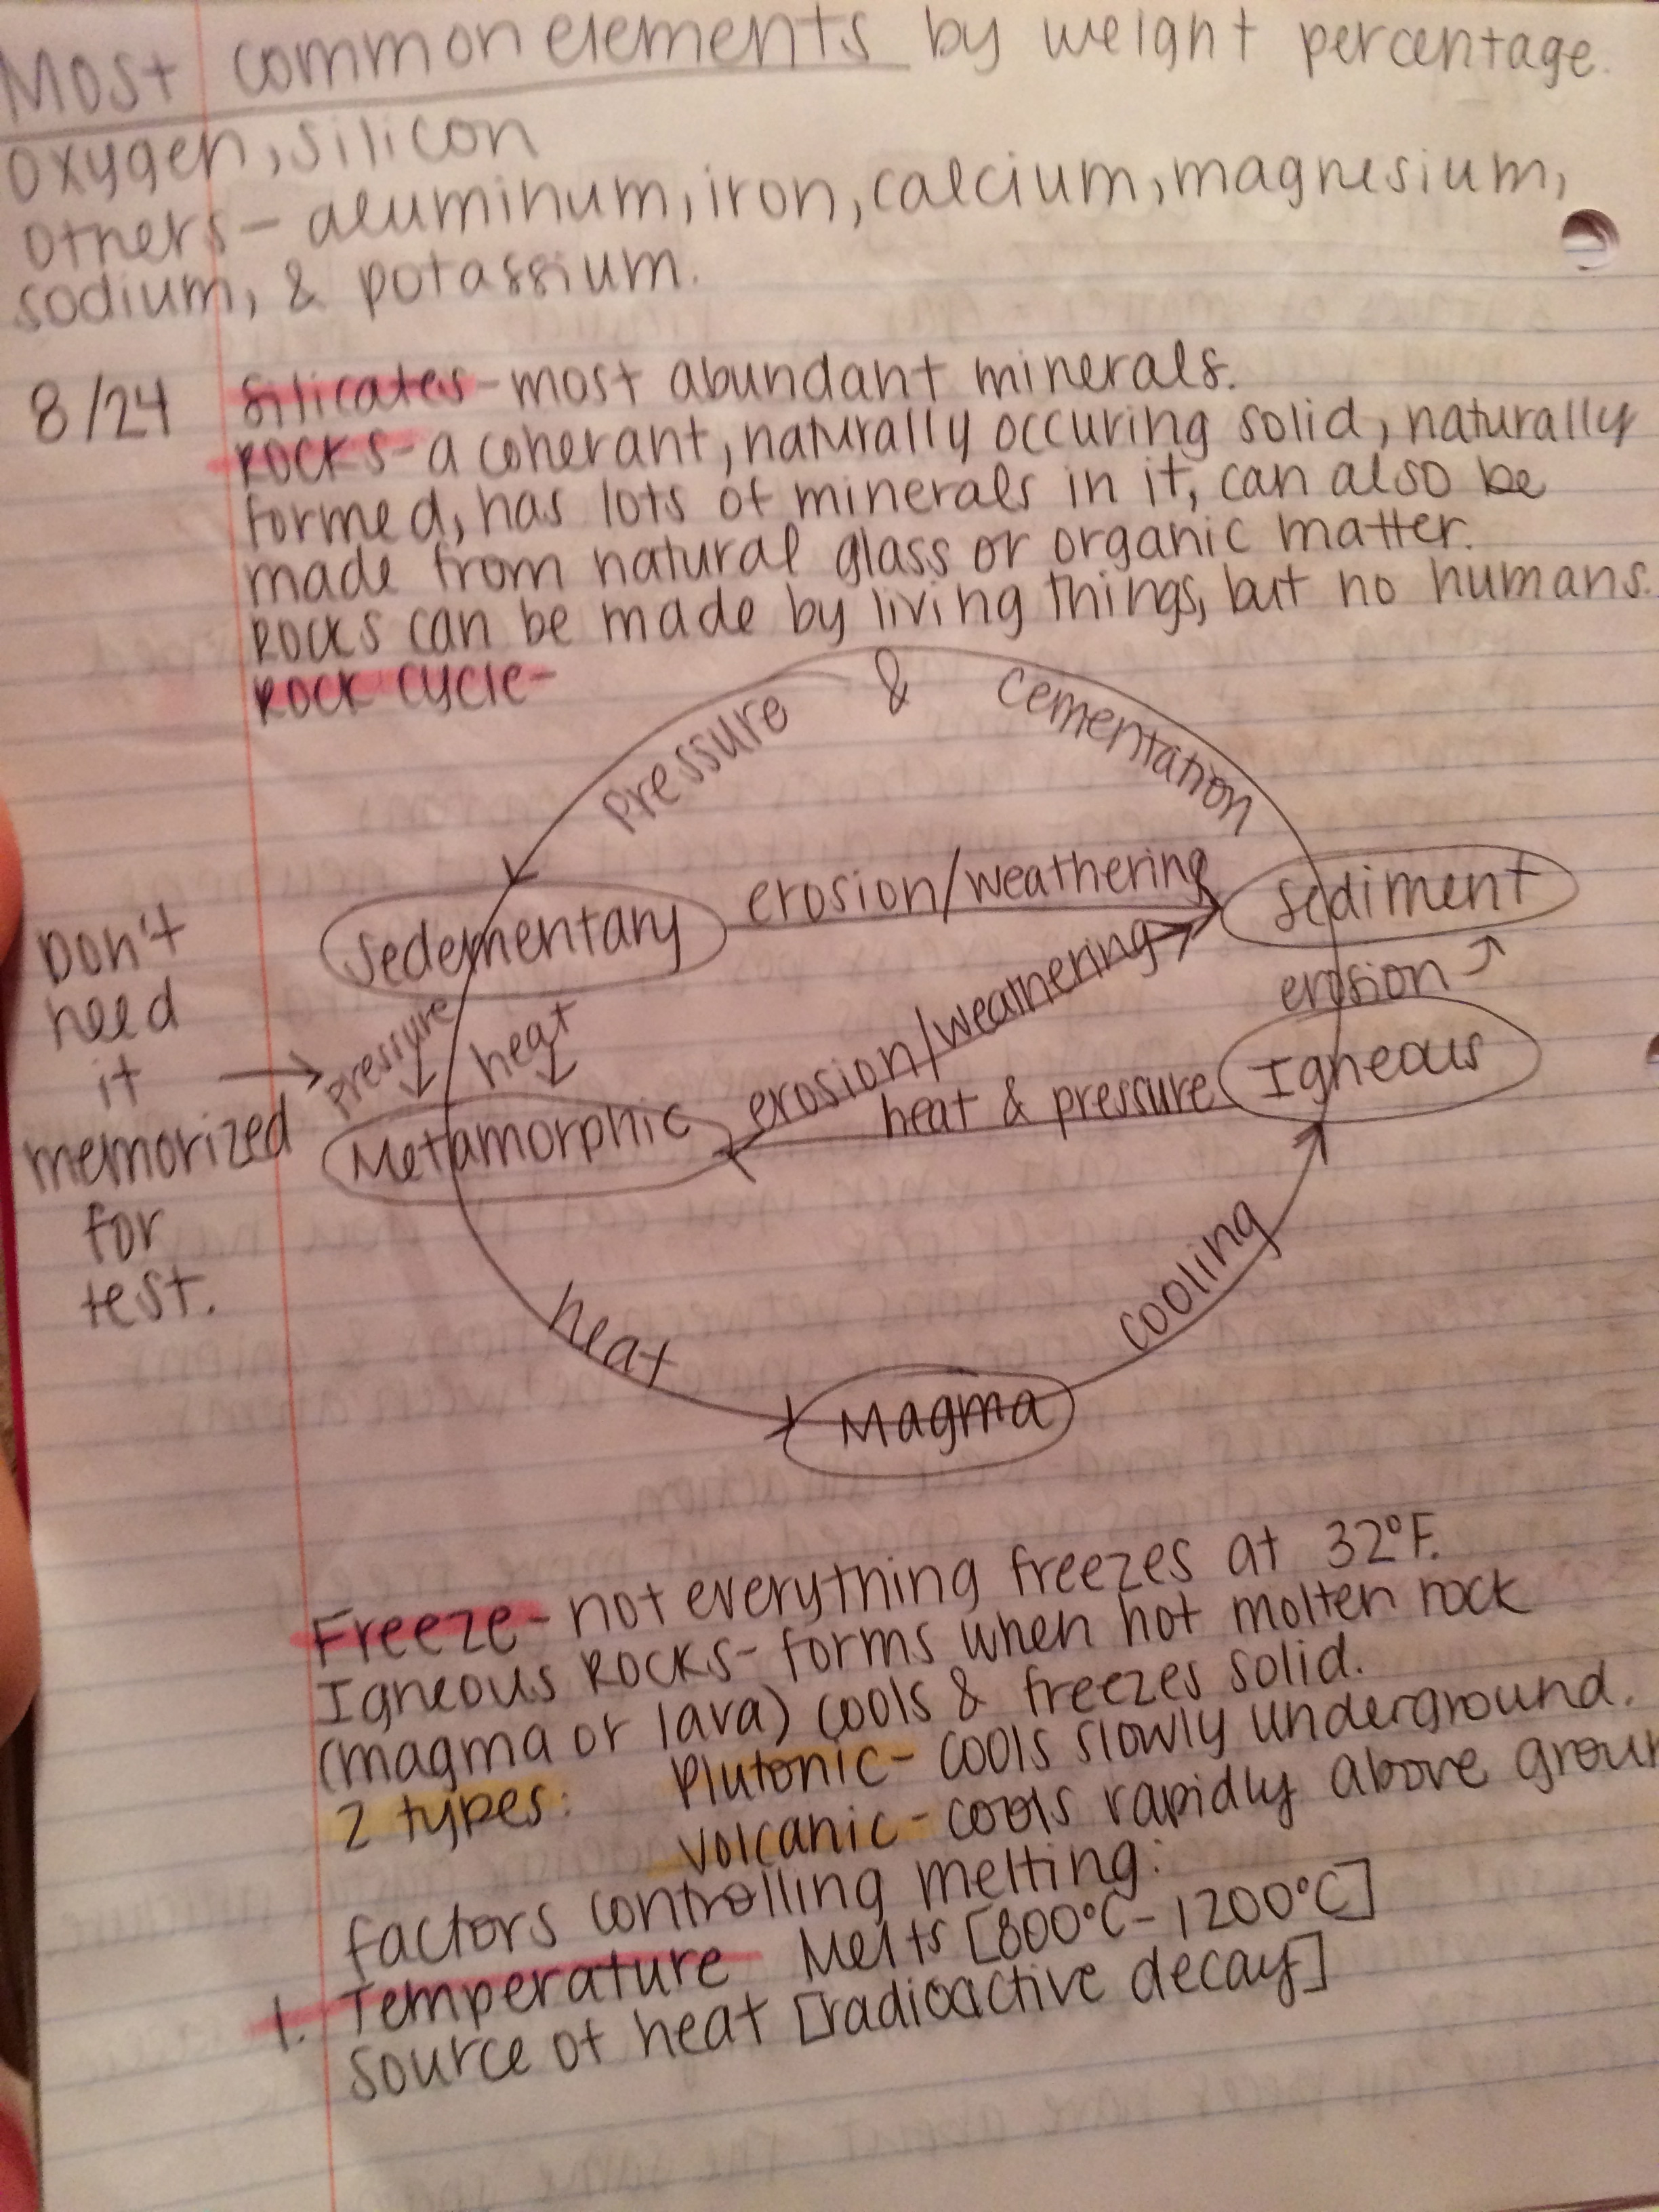 Most common elements by weight percentage.
oxygen, silicon
others - aluminum, iron, calcium, magnesium,
sodium, & potassium.
8/24 Silicates - most abundant minerals.
Rocks - a coherant, naturally occuring solid, naturally
formed, has lots of minerals in it, can also be
made from natural glass or organic matter.
Rocks can be made by living things, but no humans.
Rock cycle -
Pressure & cementation
Sedementary
erosion/weathering
Sediment
erosion
Don't
need
it
memorized
for
test.
Pressure
heat
erosion/weathering
Igneous
heat & pressure
Metamorphic
heat
cooling
Magma
Freeze - not everything freezes at 32°F.
Igneous Rocks - forms when hot molten rock
(magma or lava) cools & freezes solid.
2 types: Plutonic - cools slowly underground.
Volcanic - cools rapidly above groun
factors controlling melting:
1. Temperature Melts [800°C - 1200°C]
source of heat [radioactive decay]